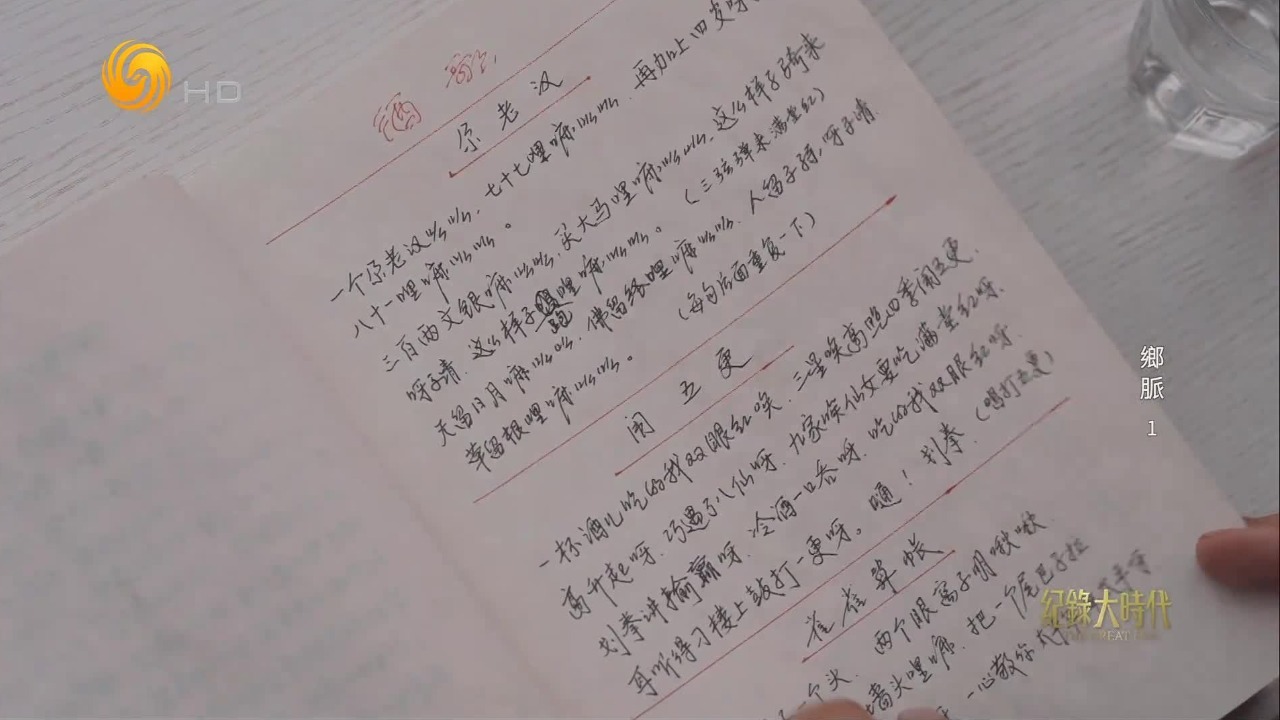 HD
酒
尕老汉
一个尕老汉哟哟，七十七哩嘛哟哟，再加上四岁呀
八十一哩嘛哟哟。
三百两文银嘛哟哟，买大马哩嘛哟哟，这么样子骑来
呀子青，这么样子跑哩嘛哟哟。（三弦弹来满堂红）
天留日月嘛哟哟，佛留经哩嘛哟哟，人留子孙，呀子青
草留根哩嘛哟哟。（每句后面重复一下）
闹五更
一杯酒儿吃的我双眼红唉，三星唉高吃四季闹五更，
高升起呀，巧遇了八仙呀，九家唉仙女要吃满堂红呀，
划拳讲输赢呀，冷酒一口吞呀，吃的我双眼红呀，
耳听得刁楼上鼓打一更呀。嗵！划拳（唱打五更）
雀雀算帐
一个头，两个眼窝子明啾啾
墙头哩嘛，把一个尾巴子拉
一心教你
鄉脈 1
紀錄大時代